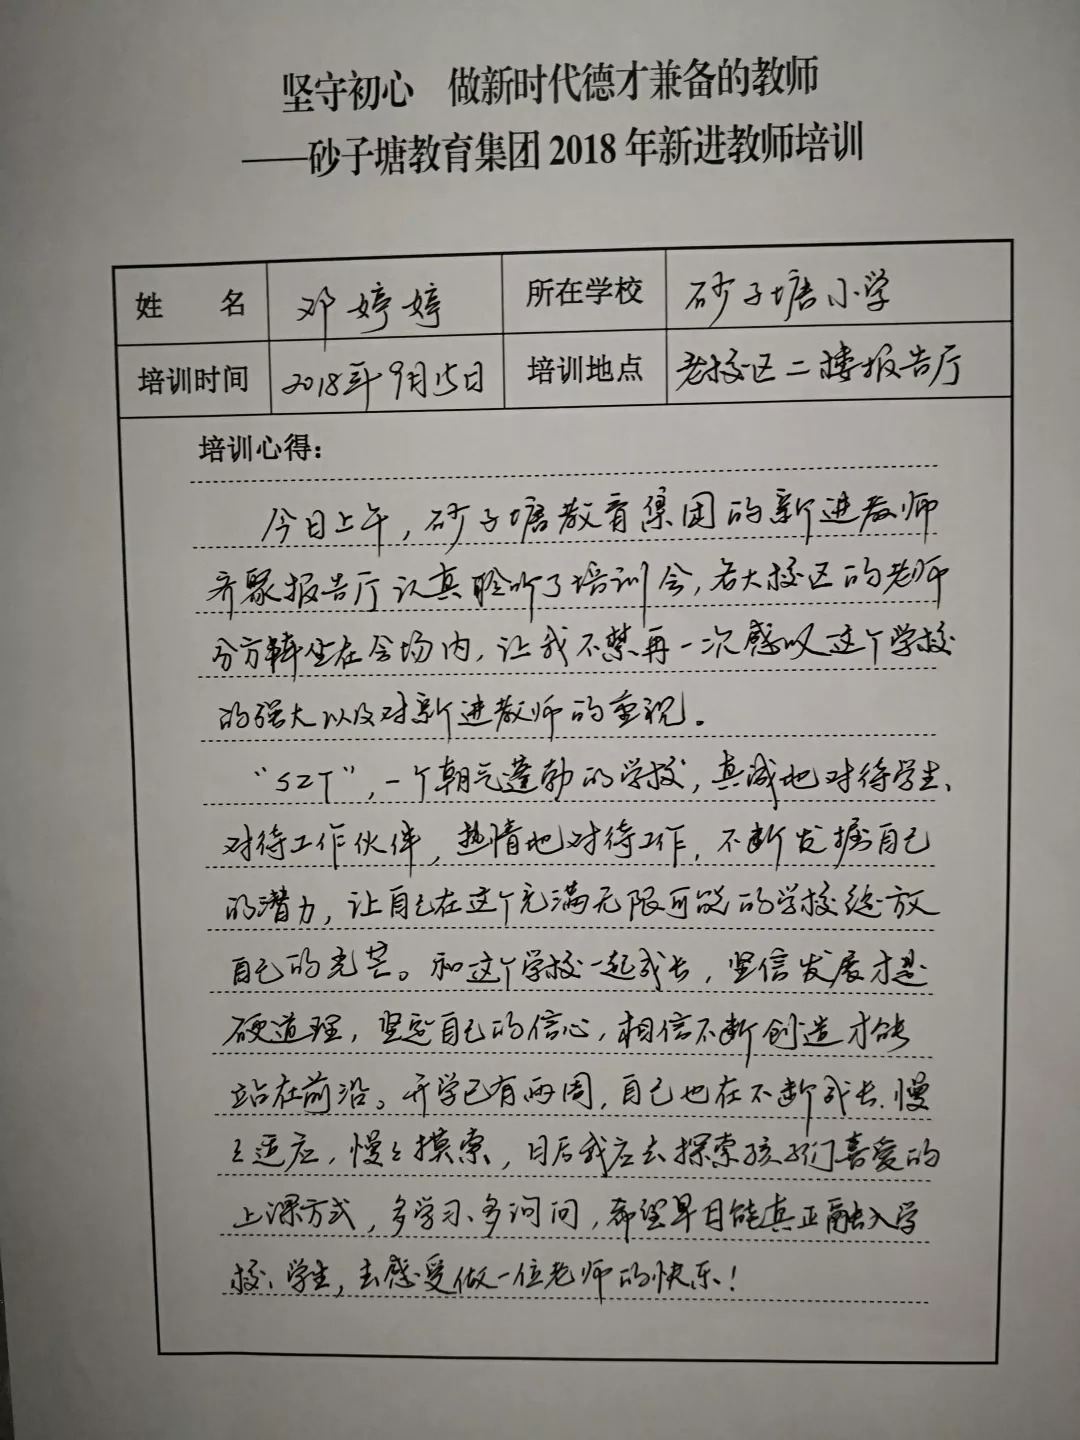 坚守初心 做新时代德才兼备的教师
——砂子塘教育集团2018年新进教师培训
姓 名 邓婷婷 所在学校 砂子塘小学
培训时间 2018年9月15日 培训地点 老校区二楼报告厅
培训心得：
今日上午，砂子塘教育集团的新进教师
齐聚报告厅认真聆听了培训会，各大校区的老师
分方阵坐在会场内，让我不禁再一次感叹这个学校
的强大以及对新进教师的重视。
“SZT”，一个朝气蓬勃的学校，真诚地对待学生、
对待工作伙伴，热情地对待工作，不断发掘自己
的潜力，让自己在这个充满无限可能的学校绽放
自己的光芒。和这个学校一起成长，坚信发展才是
硬道理，坚定自己的信心，相信不断创造才能
站在前沿。开学已有两周，自己也在不断成长、慢
慢适应，慢慢摸索，日后我应去探索孩子们喜爱的
上课方式，多学习、多问问，希望早日能真正融入学
校、学生，去感受做一位老师的快乐！